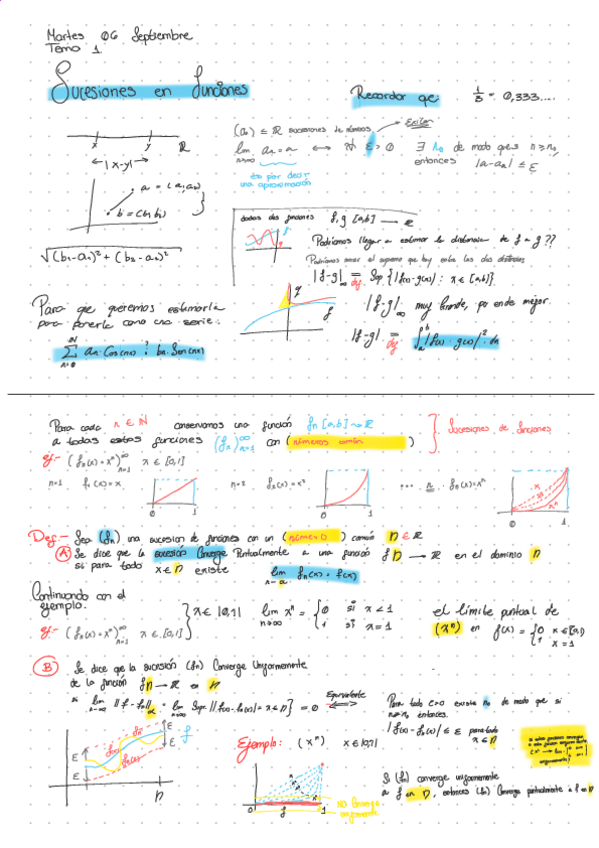 Martes 06 Septiembre
Tema 1
Sucesiones en funciones
Recordar que: 1/3 = 0,333....
(an) ⊆ R sucesiones de números. Existe
lim an = a ⟷ ∀ ε > 0 ∃ n0 de modo que n ≥ n0
n→∞ entonces |a-an| ≤ ε
x y R
|x-y|
por decir
una aproximación
a = (a1,a2)
b = (b1,b2)
√(b1-a1)² + (b2-a2)²
dadas dos funciones f,g [a,b] → R
Podríamos llegar a estimar la distancia de f a g??
Podríamos tomar el supremo que hay entre las dos distancias
|f-g|∞ = Sup {|f(x)-g(x)| : x ∈ [a,b]}
g
f
|f-g|∞ muy grande, por ende mejor.
Para que queremos estimarla
para ponerla como una serie.
|f-g| = ∫ |f(x) - g(x)|² dx
Σ an Cos(nx) bn Sen(nx)
Para cada n ∈ N conservamos una función fn [a,b] → R
a todas estas funciones (fn)∞n=1 con (números común)
Sucesiones de funciones
ej:- (fn(x) = xⁿ)∞n=1 x ∈ [0,1]
n=1 f1(x) = x
0 1
f2(x) = x²
0 1
... n fn(x) = xⁿ
0 1
Def:- Sea (fn) una sucesion de funciones con un (número) común D ∈ R
A) Se dice que la sucesión Converge Puntualmente a una función f D → R en el dominio D
si para todo x ∈ D existe lim fn(x) = f(x)
Continuando con el
ejemplo.
ej:- (fn(x) = xⁿ)∞n=1 x ∈ [0,1]
x ∈ [0,1] lim xⁿ = {0 si x < 1
n→∞ 1 si x = 1
el limite puntual de
(xⁿ) en f(x) = {0 x ∈ [0,1)
1 x = 1
B) Se dice que la sucesión (fn) Converge Uniformemente
de la función f D → R en D
si lim ||f - fn||∞ = lim Sup {|f(x) - fn(x)| = x ∈ D} = 0 Equivalente ⟺
Para todo ε>0 existe n0 de modo que si
n≥n0 entonces.
|f(x) - fn(x)| ≤ ε para todo
x ∈ D
ε
ε
f
fn(x)
D
Ejemplo: (xⁿ) x ∈ [0,1]
0 f 1
NO Converge
uniformemente
Si (fn) converge uniformemente
a f en D, entonces (fn) Converge puntualmente a f en D